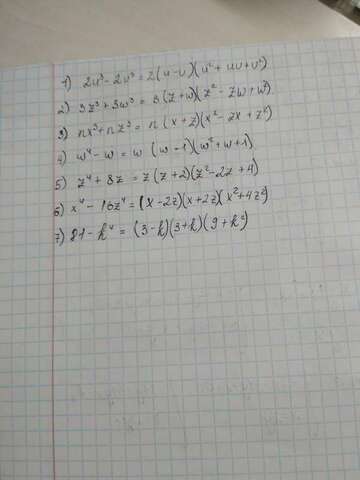 1) 2u³ - 2v³ = 2(u-v)(u² + uv + v²)
2) 3z³ + 3w³ = 3(z+w)(z² - zw + w²)
3) nx³ + nz³ = n(x+z)(x² - zx + z²)
4) w⁴ - w = w (w-1)(w² + w + 1)
5) z⁴ + 8z = z(z+2)(z² - 2z + 4)
6) x⁴ - 16z⁴ = (x-2z)(x+2z)(x² + 4z²)
7) 81 - k⁴ = (3-k)(3+k)(9 + k²)